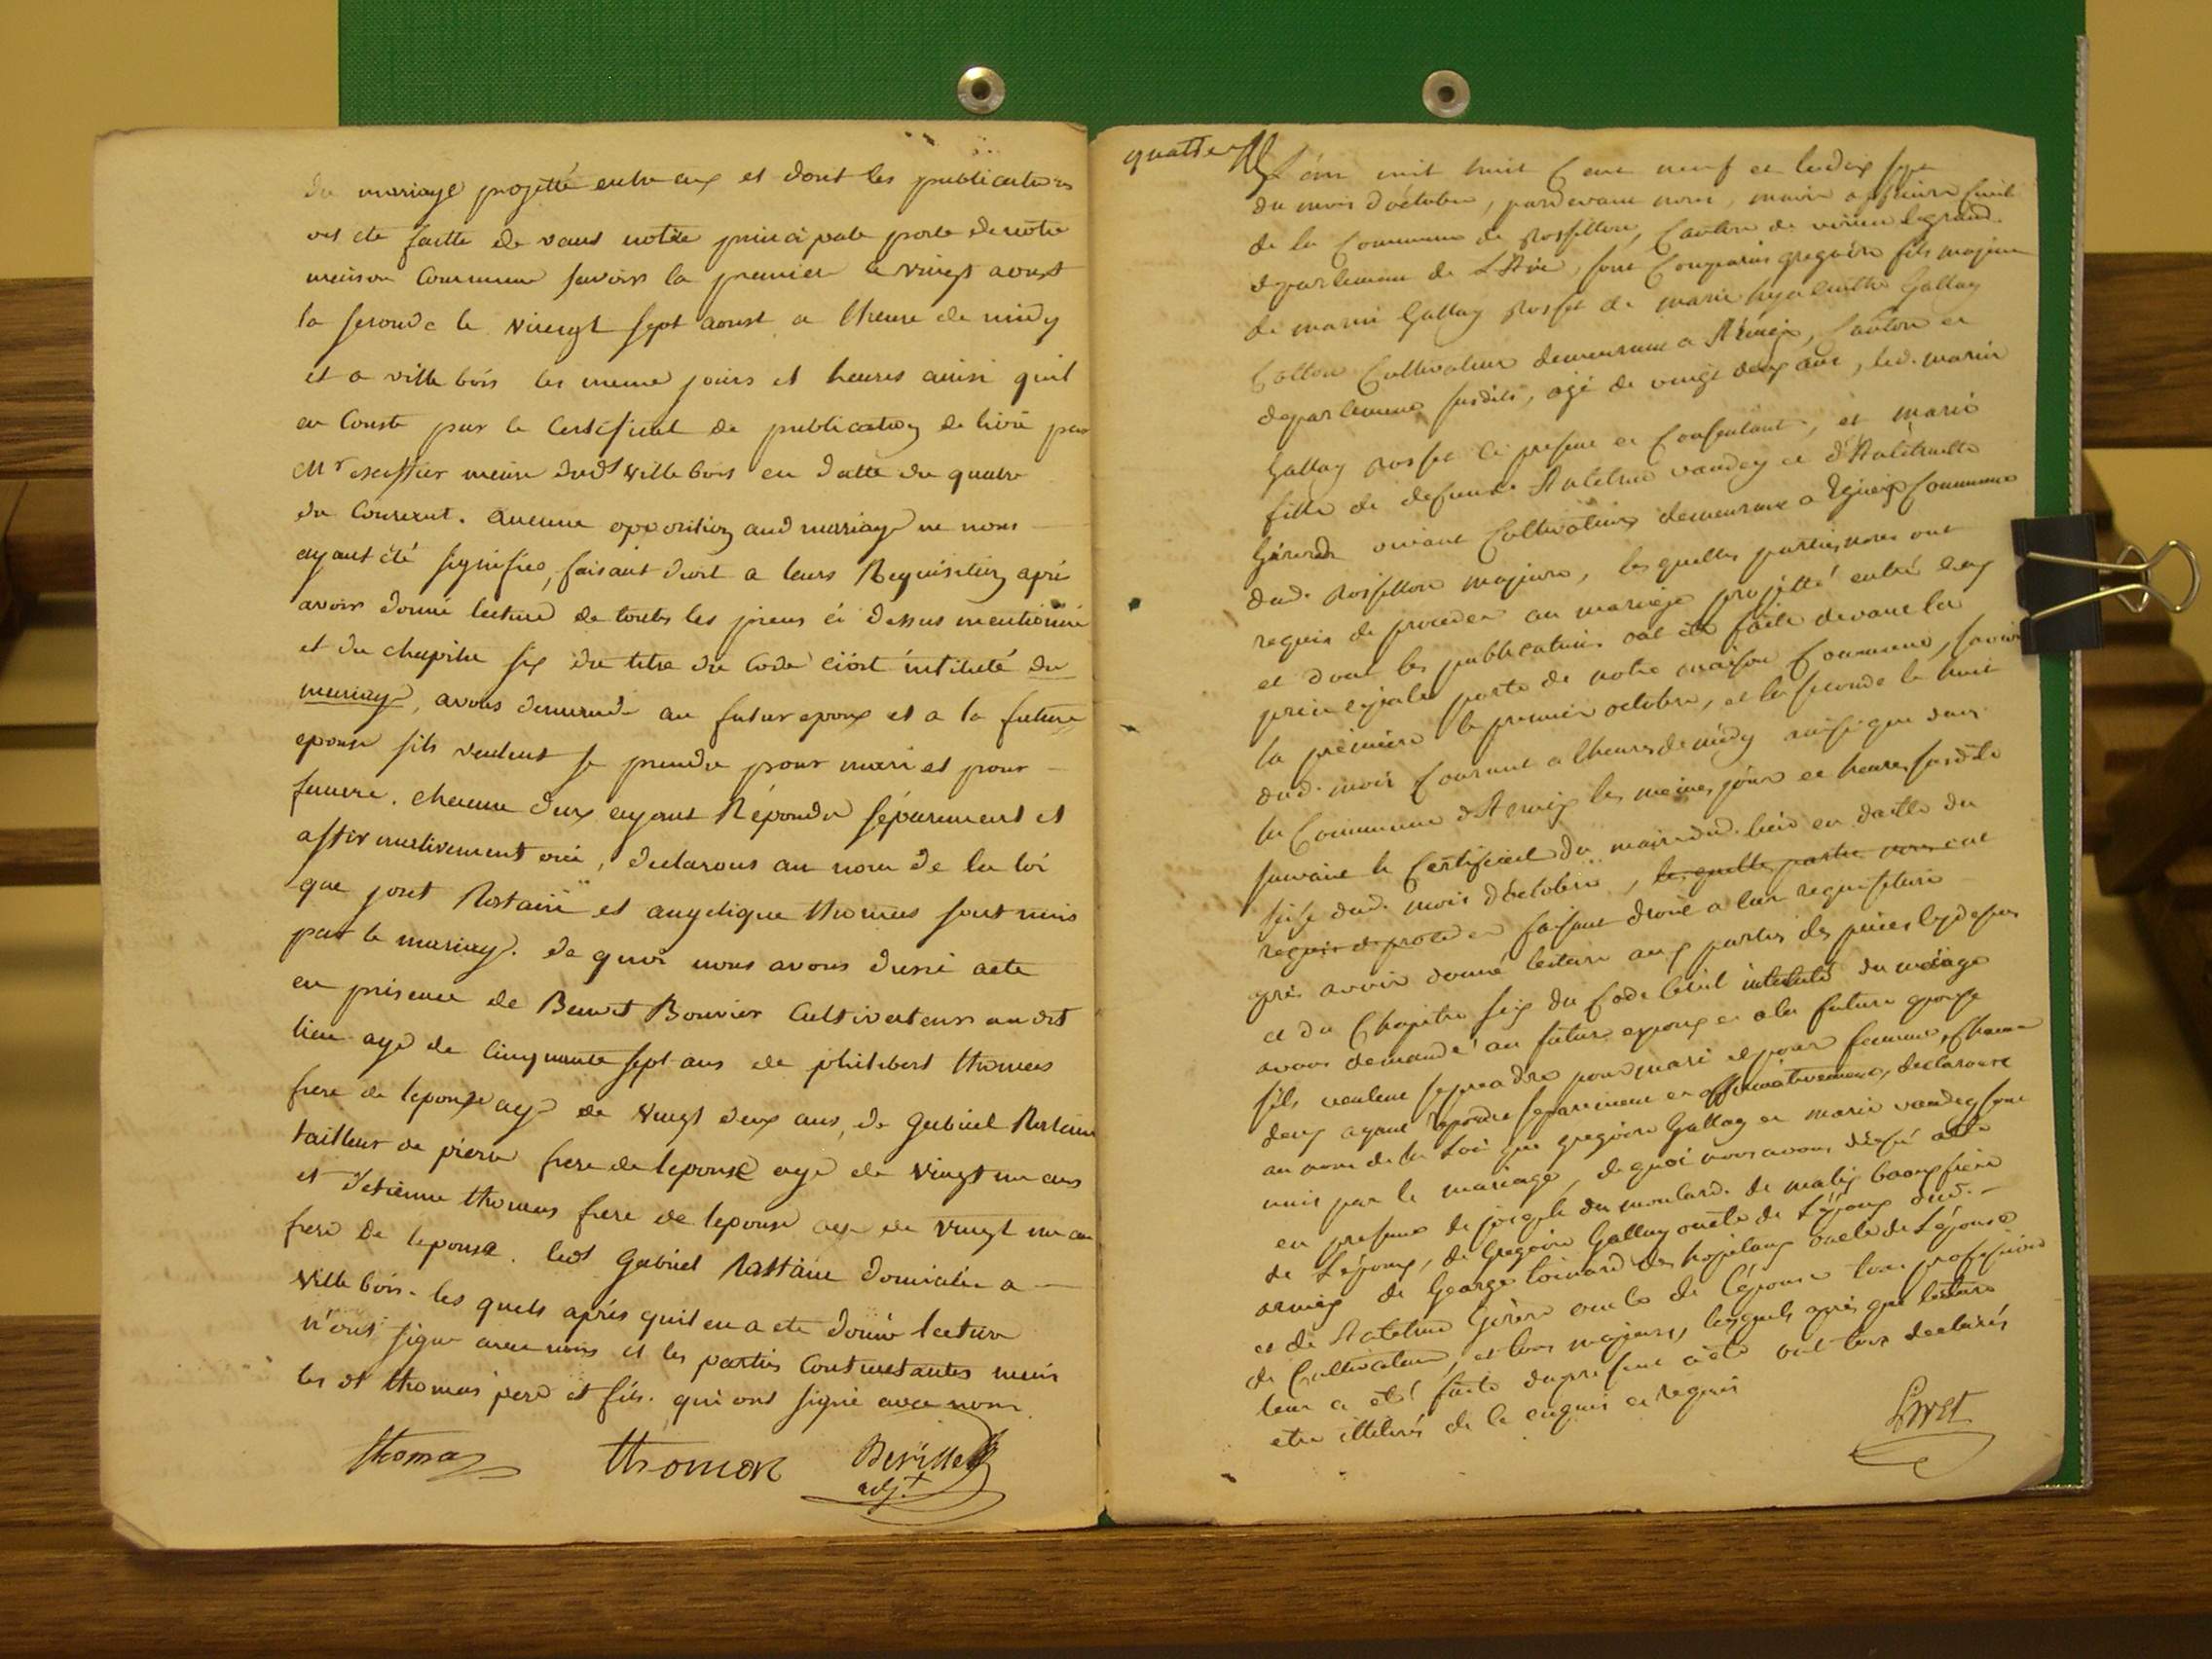 du mariage projetté entre eux et dont les publications
ont été faitte de vant notre principale porte de notre
maison Commune savoir la premier le vingt aoust
la seconde le vingt sept aoust a lheure de midy
et a ville bois les meme jours et heures ainsi quil
en Conste par le Certificat de publication de livré par
Mr meire dudt ville bois en datte du quatre
du Courant. Aucune opposition aud mariage ne nous
ayant été signifiée, faisant droit a leurs Requisition apré
avoir donné lecture de toutes les pieces ci dessus mentionné
et du chapitre six du titre du Code civil intitulé du
mariage, avons demandé au futur epoux et a la future
epouse sils veulent se prendre pour mari et pour
femme. chacun deux ayant Répondu séparement et
affirmativement oui, declarons au nom de la loi
que joset Rostain et angelique thomas sont unis
par le mariage. de quoi nous avons dressé acte
en présence de Benoit Bouvier Cultivateur audit
lieu agé de Cinquante sept ans de philibert thomas
frere de lepouse agé de vingt deux ans, de gabriel Rostain
tailleur de pierre frere de lepouse agé de vingt un ans
et detienne thomas frere de lepouse age de vingt un an
frere de lepouse. ledt gabriel Rastain domicilié a
ville bois. les quels aprés quil en a eté donné lecture
n'ont signé avec nous et les parties Contractantes mais
les dt thomas pere et fils. qui ont signé avec nous
thomas thomas
adjt
quatre
L'an mil huit Cent neuf et le dix sept
du mois d'octobre, pardevant nous, maire officier Civil
de la Commune de Rossillon, Canton de virieu legrand
departement de L'Ain, sont Comparus gregoire fils majeur
de marin Gallay Rosset de marie hyacinthe Gallay
Cotton Cultivateur demeurant a Armix, Canton et
departement susdits, agé de vingt deux ans, led. marin
Gallay Rosset ci present et Consentant, et marie
fille de defunt Antelme vandey et d'Antelmette
Gérard vivant Cultivateurs demeurant a Egieux Commune
dud. Rossillon majeure, lesquelles parties nous ont
requis de proceder au mariage projetté entre eux
et dont les publications ont été faite devant la
principale porte de notre maison Commune, savoir
la première le premier octobre, et la seconde le huit
dud. mois Courant a lheure de midy ainsi que dans
la Commune d'Armix les memes jours et heures susdite
suivant le Certificat du maire dud. lieu en datte du
seize dud. mois d'octobre, lesquelles parties nous ont
requis de proceder faisant droit a leur requisition
après avoir donné lecture aux parties des pièces cy dessus
et du Chapitre six du Code Civil intitulé du mariage
avons demandé au futur epoux et a la future epouse
sils veulent se prendre pour mari et pour femme, Chacun
deux ayant repondu separement et affirmativement, declarons
au nom de la Loi que gregoire Gallay et marie vandey sont
unis par le mariage, de quoi nous avons dressé acte
en presence de joseph du moulard de beaux frère
de L'époux, de Gregoire Gallay oncle de L'époux dud.
armix de George oncle de L'épouse
et de Antelme Gérard oncle de l'épouse tous profession
de Cultivateur, et tous majeurs, lesquels après que lecture
leur a eté faite du present acte ont tous declarés
etre illitérés de le enquis et requis